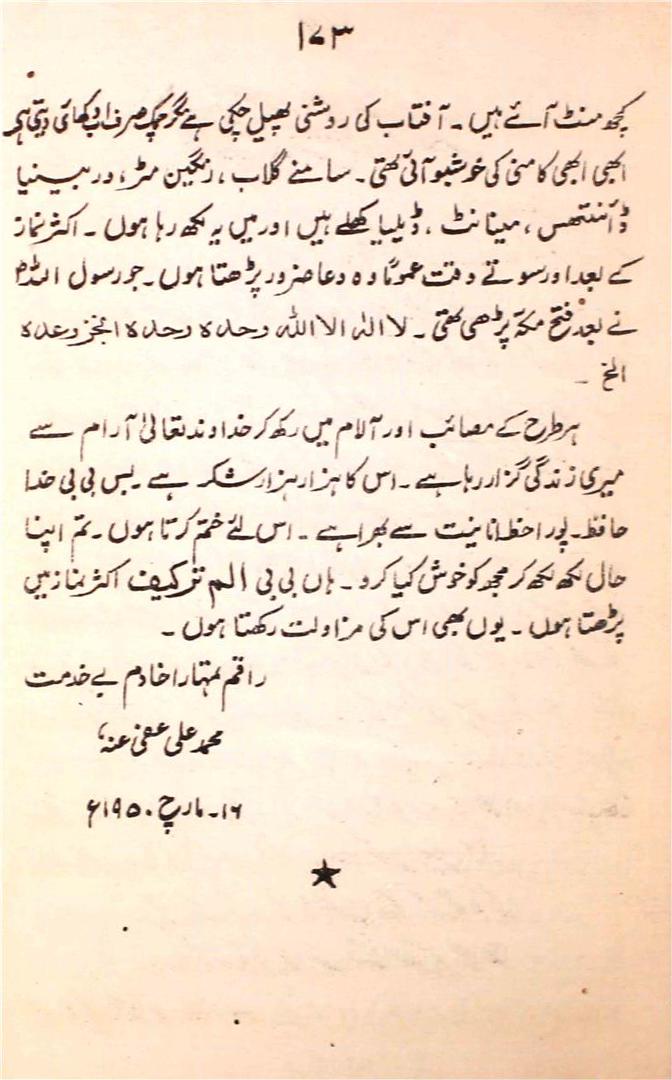 ۱۷۳
کچھ منٹ آئے ہیں۔ آفتاب کی روشنی پھیل چکی ہے مگر چمک صرف اب دکھائی دیتی ہے
ابھی ابھی کامنی کی خوشبو آئی تھی۔ سامنے گلاب، رنگین مٹر، وربینیا
ڈائنتھس، مینانٹ، ڈیلیا کھلے ہیں اور میں یہ لکھ رہا ہوں۔ اکثر نماز
کے بعد اور سوتے وقت عموماً وہ دعا ضرور پڑھتا ہوں۔ جو رسول اللہؐ
نے بعد فتح مکہ پڑھی تھی۔ لا الٰہ الا اللہ وحدہ وحدہ انجز وعدہ
الخ۔
ہر طرح کے مصائب اور آلام میں رکھ کر خداوند تعالیٰ آرام سے
میری زندگی گزار رہا ہے۔ اس کا ہزار ہزار شکر ہے۔ بس بی بی خدا
حافظ۔ پورا خط انانیت سے بھرا ہے۔ اس لئے ختم کرتا ہوں۔ تم اپنا
حال لکھ لکھ کر مجھ کو خوش کیا کرو۔ ہاں بی بی الم ترکیف اکثر نماز میں
پڑھتا ہوں۔ یوں بھی اس کی مزاولت رکھتا ہوں۔
راقم تمہارا خادم بے خدمت
محمد علی عفی عنہٗ
۱۶۔ مارچ ۱۹۵۰ء